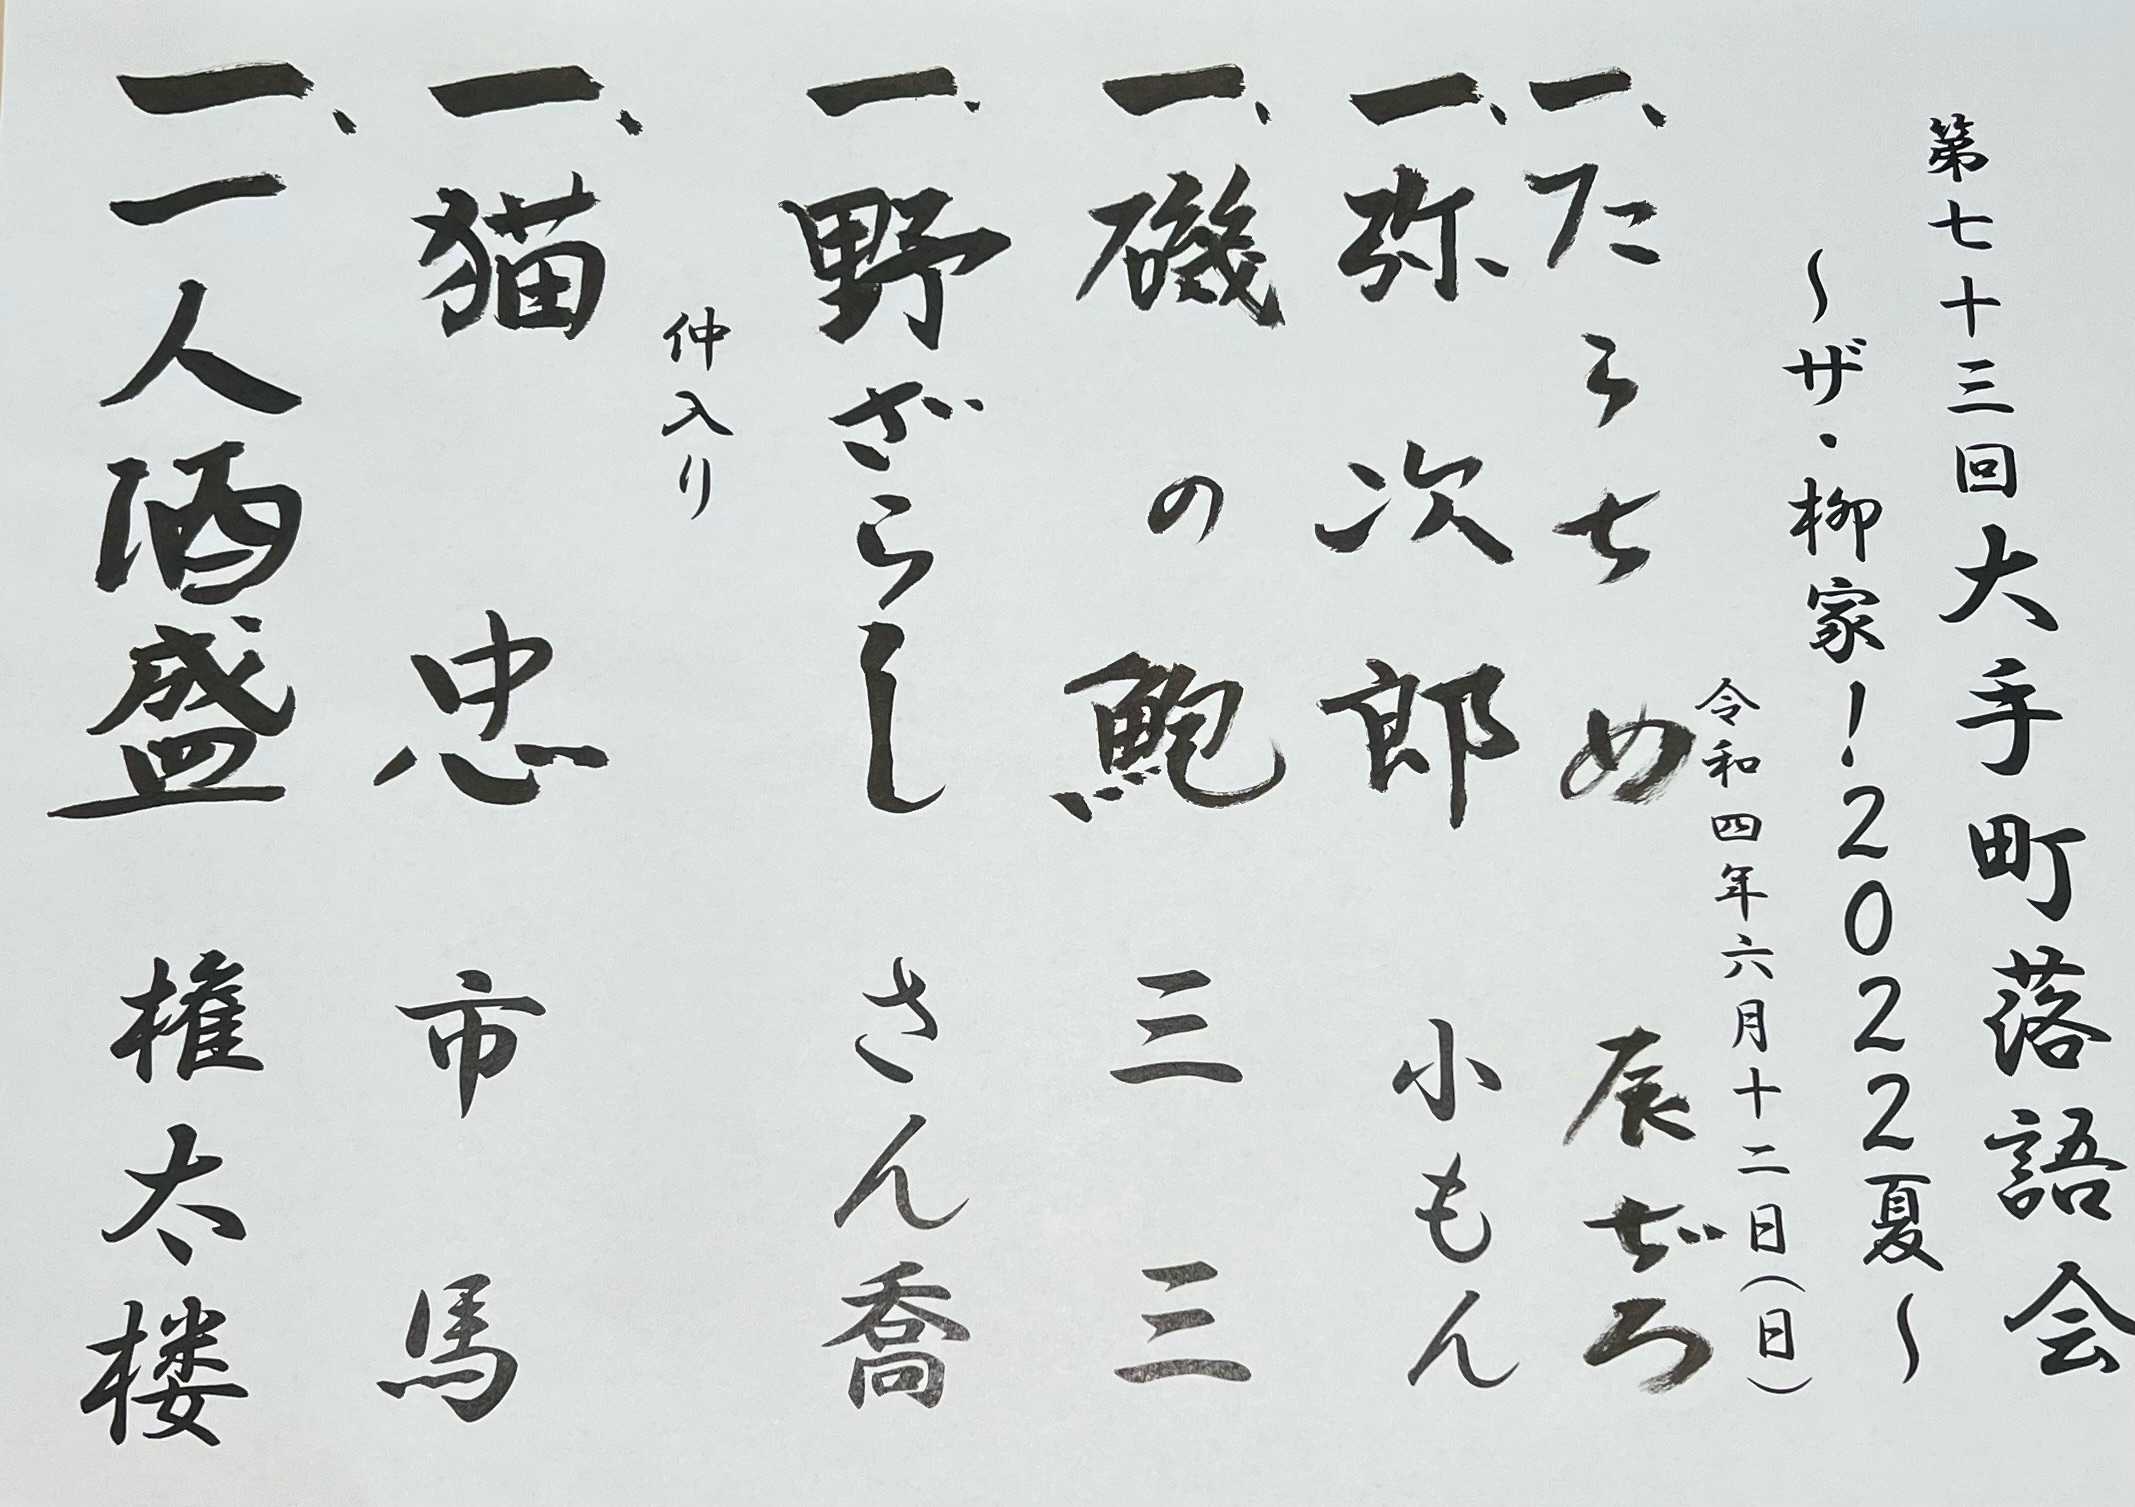 第七十三回大手町落語会
～ザ・柳家！2022夏～
令和四年六月十二日（日）
一、たらちめ 辰ぢろ
一、弥次郎 小もん
一、磯の鮑 三三
一、野ざらし さん喬
仲入り
一、猫忠 市馬
一、一人酒盛 権太楼